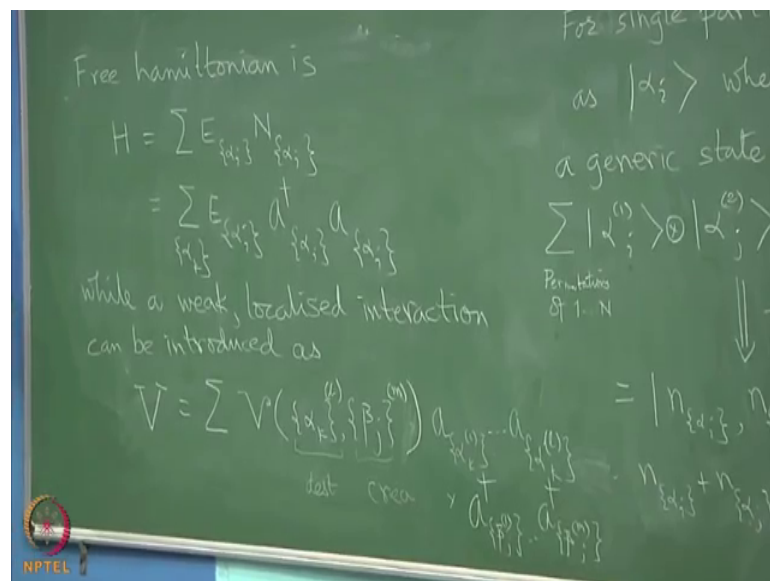 Free hamiltonian is
H = ∑ E_{αⱼ} N_{αⱼ}
= ∑_{αₖ} E_{αⱼ} a†_{αⱼ} a_{αⱼ}
while a weak, localised interaction
can be introduced as
V = ∑ V({αₖ}^(l), {βⱼ}^(m)) a_{αₖ^(1)} ... a_{αₖ^(l)}
dest crea × a†_{βⱼ^(1)} .. a†_{βⱼ^(m)}
For single part
as |αᵢ> whe
a generic state
∑ |α^(1)ᵢ> ⊗ |α^(2)ⱼ>
Permutations
of 1...N
= |n_{αᵢ}, n
n_{αᵢ} + n_{αⱼ
NPTEL